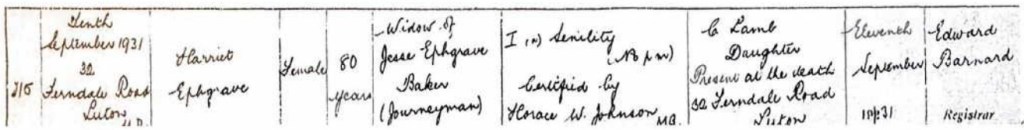 315
Tenth
September 1931
32
Ferndale Road
Luton
Harriet
Ephgrave
Female
80
years
Widow of
Jesse Ephgrave
Baker
(Journeyman)
I (a) Senility
(No p.m)
Certified by
Horace W. Johnson M.B.
C Lamb
Daughter
Present at the death
32 Ferndale Road
Luton
Eleventh
September
1931
Edward
Barnard
Registrar